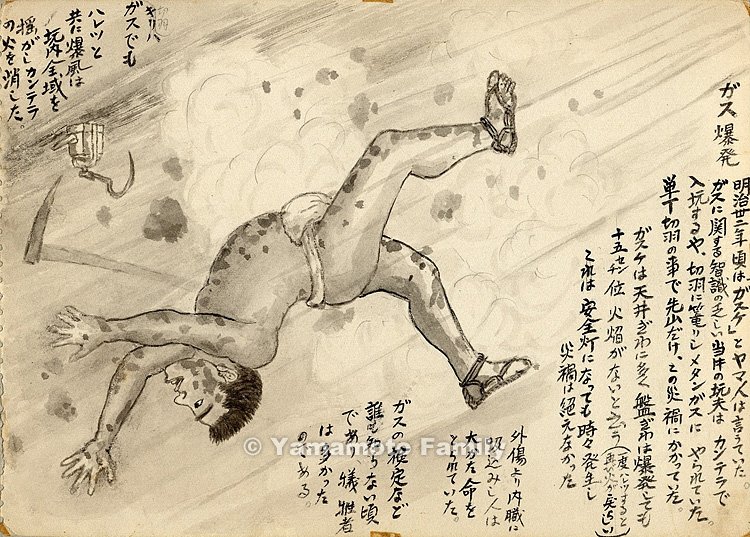 ガス爆発
明治卅二年頃は「ガスケ」とヤマ人は言うていた。
ガスに関する智識の乏しい当时の坑夫は カンテラで
入坑するや、切羽に篭りしメタンガスに やられていた。
単丁切羽の事で先山だけ、この災禍にかかっていた。
ガスケは天井ぎわに多く盤ぎわは爆発しても
十五センチ位 火焰がないと云う
これは安全灯になっても時々発生し
災禍は絶えなかった
外傷より内臓に
吸込みし人は
大方な命を
とられていた。
ガスの検定など
誰も知らない頃
であり 犠牲者
は多かった
のである。
切羽
キリハ
ガスでも
ハレツと
共に爆風は
坑内全域を
揺がしカンテラ
の火を消した。
© Yamamoto Family